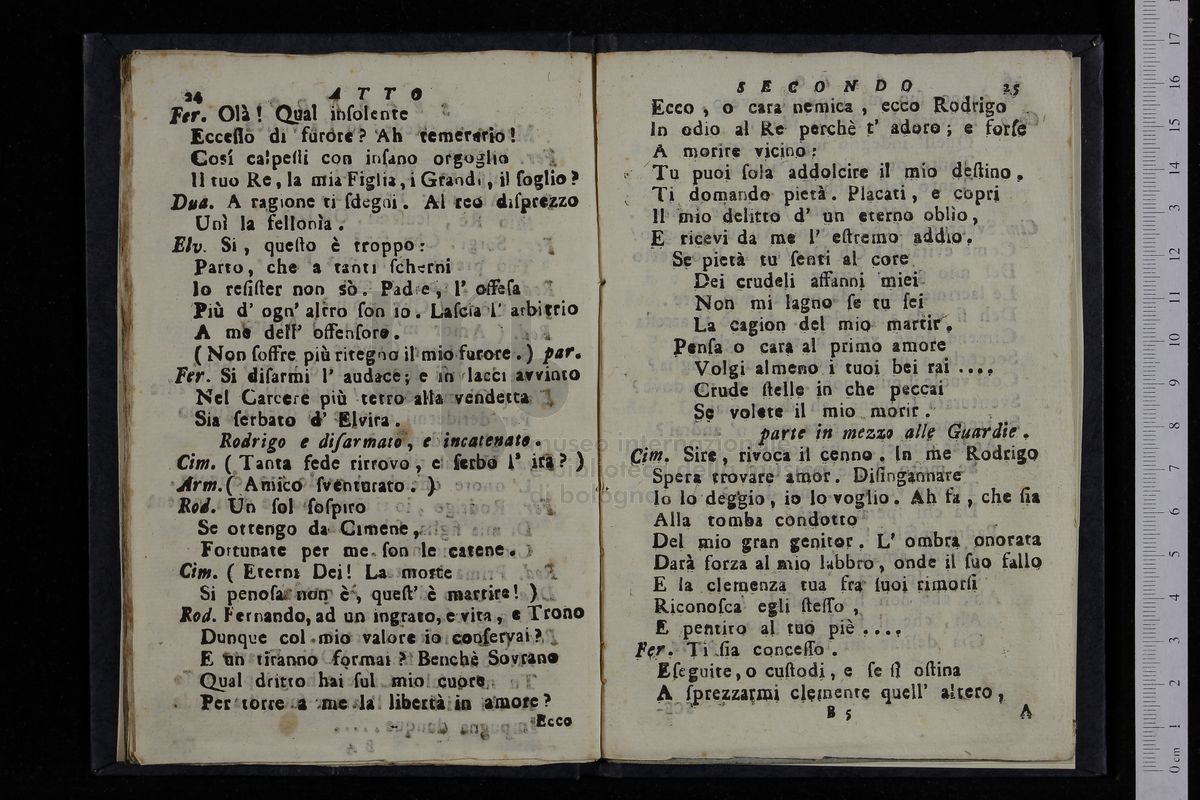 24 ATTO
Fer. Olà! Qual inſolente
Ecceſſo di furore? Ah temerario!
Così calpeſti con inſano orgoglio
Il tuo Re, la mia Figlia, i Grandi, il ſoglio?
Dua. A ragione ti ſdegni. Al reo diſprezzo
Unì la fellonìa.
Elv. Si, queſto è troppo:
Parto, che a tanti ſcherni
Io reſiſter non sò. Padre, l' offeſa
Più d' ogn' altro ſon io. Laſcia l' arbitrio
A me dell' offenſore.
(Non ſoffre più ritegno il mio furore.) par.
Fer. Si diſarmi l' audace; e in lacci avvinto
Nel Carcere più tetro alla vendetta
Sia ſerbato d' Elvira.
Rodrigo e diſarmato, e incatenato.
Cim. (Tanta fede ritrovo, e ſerbo l' ira?)
Arm. (Amico ſventurato.)
Rod. Un ſol ſoſpiro
Se ottengo da Cimene,
Fortunate per me ſon le catene.
Cim. (Eterni Dei! La morte
Si penoſa non è, queſt' è martire!)
Rod. Fernando, ad un ingrato, e vita, e Trono
Dunque col mio valore io conſervai?
E un tiranno formai? Benchè Sovrano
Qual dritto hai ſul mio cuore,
Per torre a me la libertà in amore?
Ecco
SECONDO 25
Ecco, o cara nemica, ecco Rodrigo
In odio al Re perchè t' adoro; e forſe
A morire vicino:
Tu puoi ſola addolcire il mio deſtino,
Ti domando pietà. Placati, e copri
Il mio delitto d' un eterno oblio,
E ricevi da me l' eſtremo addio.
Se pietà tu ſenti al core
Dei crudeli affanni miei
Non mi lagno ſe tu ſei
La cagion del mio martir.
Penſa o cara al primo amore
Volgi almeno i tuoi bei rai ....
Crude ſtelle in che peccai
Se volete il mio morir.
parte in mezzo alle Guardie.
Cim. Sire, rivoca il cenno. In me Rodrigo
Spera trovare amor. Diſingannare
Io lo deggio, io lo voglio. Ah fa, che ſia
Alla tomba condotto
Del mio gran genitor. L' ombra onorata
Darà forza al mio labbro, onde il ſuo fallo
E la clemenza tua fra ſuoi rimorſi
Riconoſca egli ſteſſo,
E pentito al tuo piè ....
Fer. Ti ſia conceſſo.
Eſeguite, o cuſtodi, e ſe ſi oſtina
A ſprezzarmi clemente quell' altero,
B 5 A
museo internazionale
e biblioteca della musica
di bologna